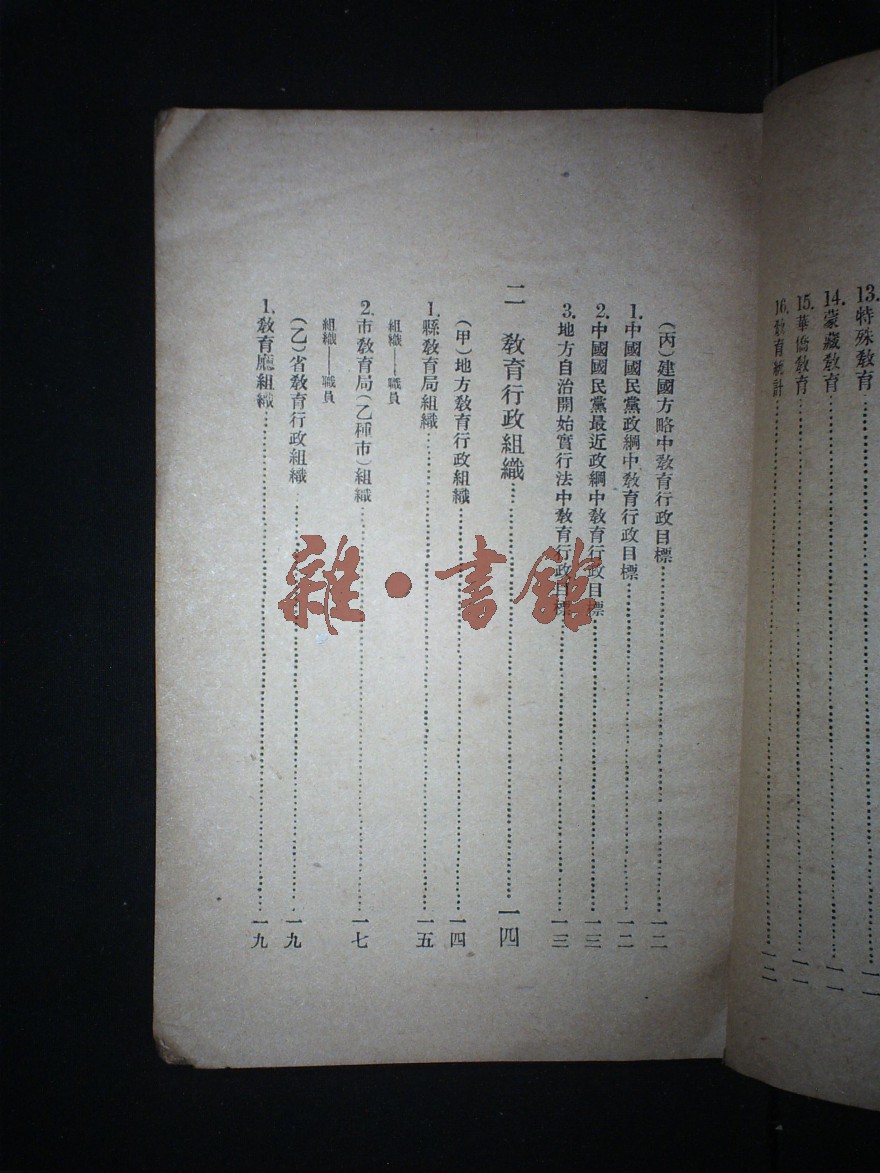 13.特殊敎育……一一
14.蒙藏敎育……一一
15.華僑敎育……一一
16.敎育統計……一二
(丙)建國方略中敎育行政目標……一二
1.中國國民黨政綱中敎育行政目標……一二
2.中國國民黨最近政綱中敎育行政目標……一三
3.地方自治開始實行法中敎育行政目標……一三
二 敎育行政組織……一四
(甲)地方敎育行政組織……一四
1.縣敎育局組織……一五
組織——職員
2.市敎育局(乙種市)組織……一七
組織——職員
(乙)省敎育行政組織……一九
1.敎育廳組織……一九
雜·書館